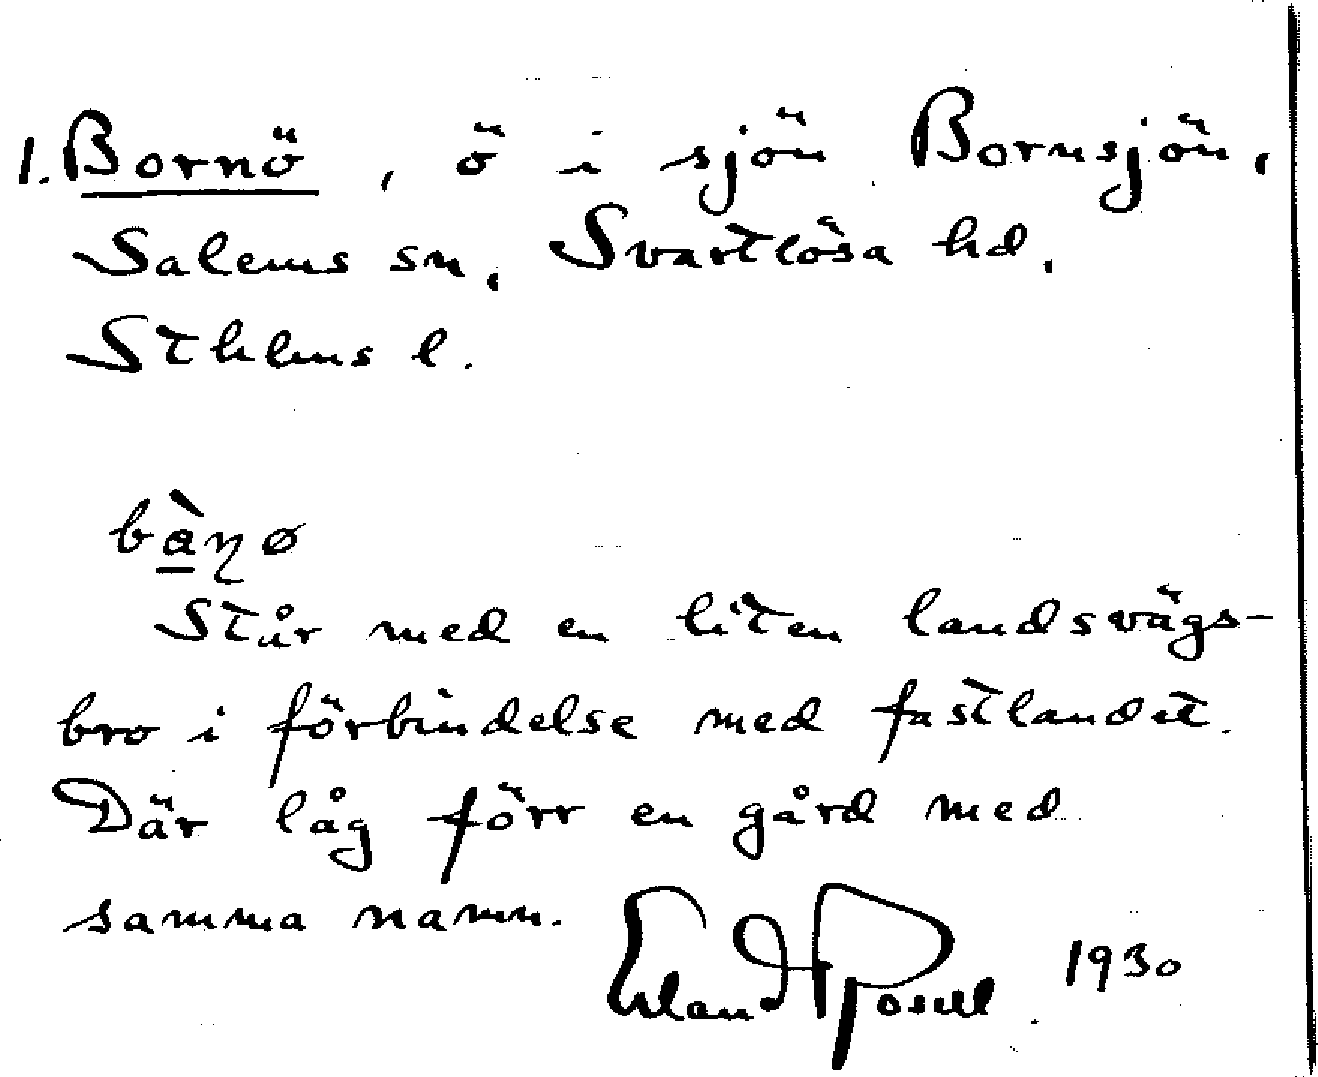 1. Bornö, ö i sjön Bornsjön,
Salems sn, Svartlösa hd,
Sthlms l.
Står med en liten landsvägs-
bro i förbindelse med fastlandet.
Där låg förr en gård med
samma namn. Erland Rosell 1930